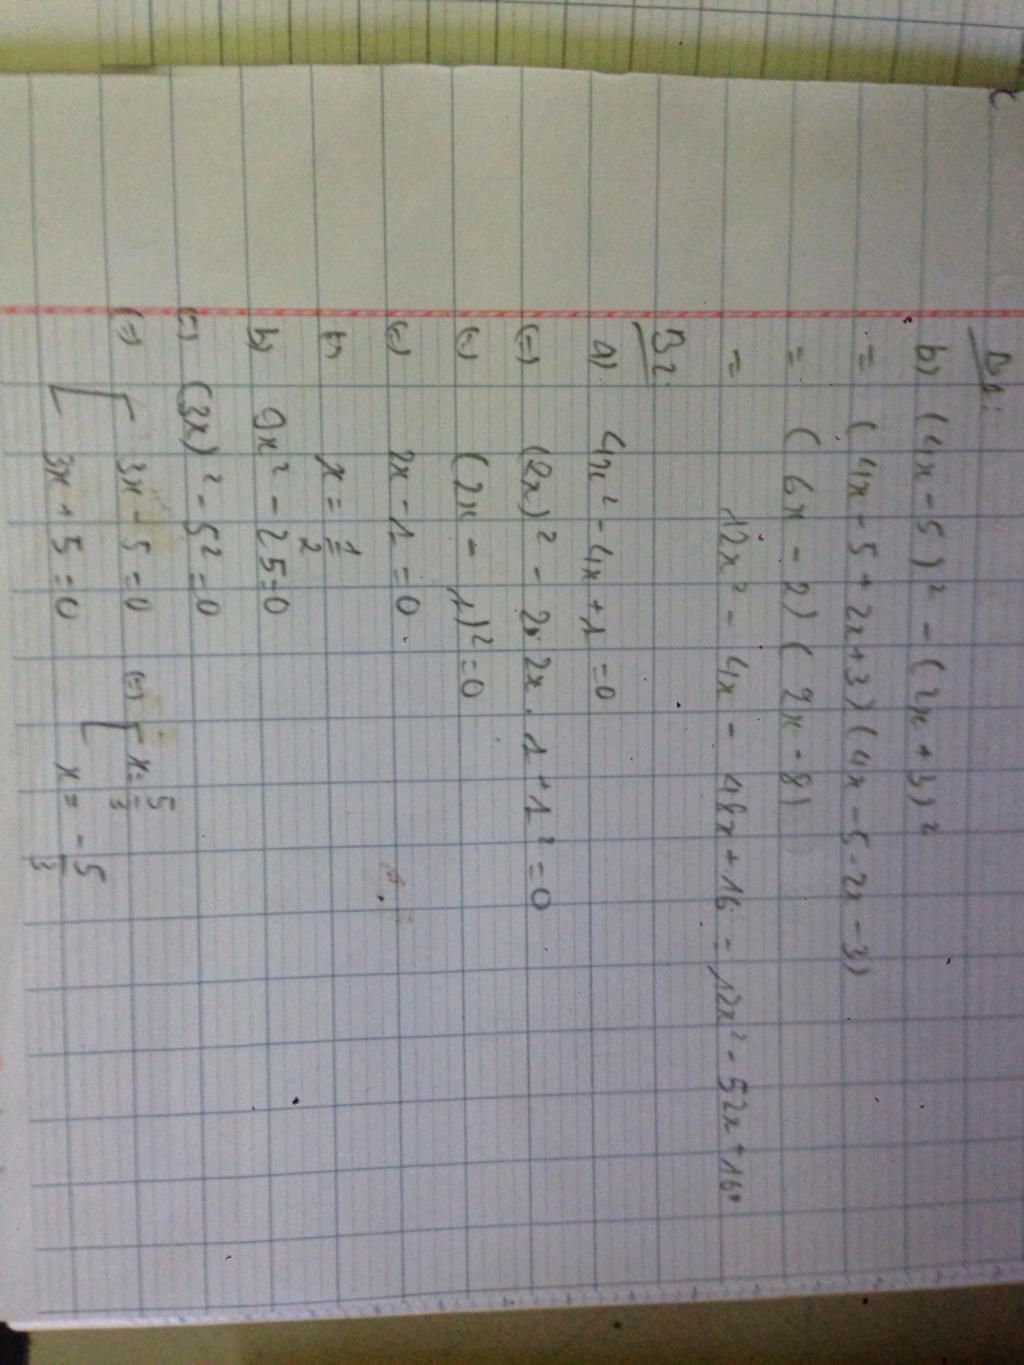 B1:
b) (4x - 5)² - (2x + 3)²
= (4x - 5 + 2x + 3) (4x - 5 - 2x - 3)
= (6x - 2) (2x - 8)
= 12x² - 4x - 48x + 16 = 12x² - 52x + 16
B2:
a) 4x² - 4x + 1 = 0
(=) (2x)² - 2. 2x. 1 + 1² = 0
(=) (2x - 1)² = 0
(=) 2x - 1 = 0
(=) x = 1/2
b) 9x² - 25 = 0
(=) (3x)² - 5² = 0
(=) [ 3x - 5 = 0 (=) [ x = 5/3
3x + 5 = 0 x = -5/3